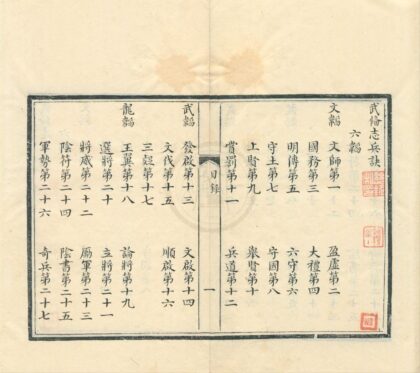 武備志兵訣
六韜
文韜 文師第一 盈虛第二
國務第三 大禮第四
明傳第五 六守第六
守土第七 守國第八
上賢第九 舉賢第十
賞罰第十一 兵道第十二
目錄 一
武韜 發啟第十三 文啟第十四
文伐第十五 順啟第十六
三疑第十七
龍韜 王翼第十八 論將第十九
選將第二十 立將第二十一
將威第二十二 勵軍第二十三
陰符第二十四 陰書第二十五
軍勢第二十六 奇兵第二十七